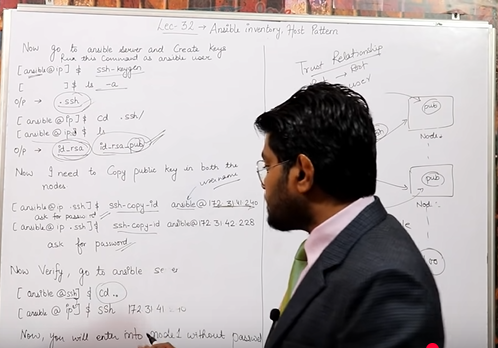 Lec-32 → Ansible inventory, Host Pattern
Now go to ansible server and Create keys
Run this Comment as ansible user
[ansible@ip] $ ssh-keygen
[ ] $ ls -a
O/p → .ssh
[ansible@ip] $ cd .ssh/
[ansible@ip] $ ls
O/p → id_rsa id_rsa.pub
Now I need to Copy public key in both the
nodes
username
[ansible@ip .ssh] $ ssh-copy-id ansible@172.31.41.240
ask for password
[ansible@ip .ssh] $ ssh-copy-id ansible@172.31.42.228
ask for password
Now Verify, go to ansible
[ansible@ssh] $ cd ..
[ansible@ip] $ ssh 172.31.41
Now, you will enter into node1 without
Trust Relationship
user
pub
Node
pub
Node